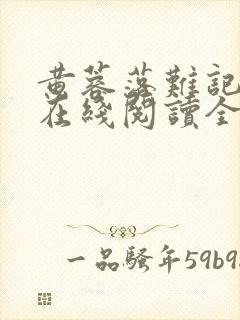 黄蓉落難記
在綫閱讀全
一品騷年59b9